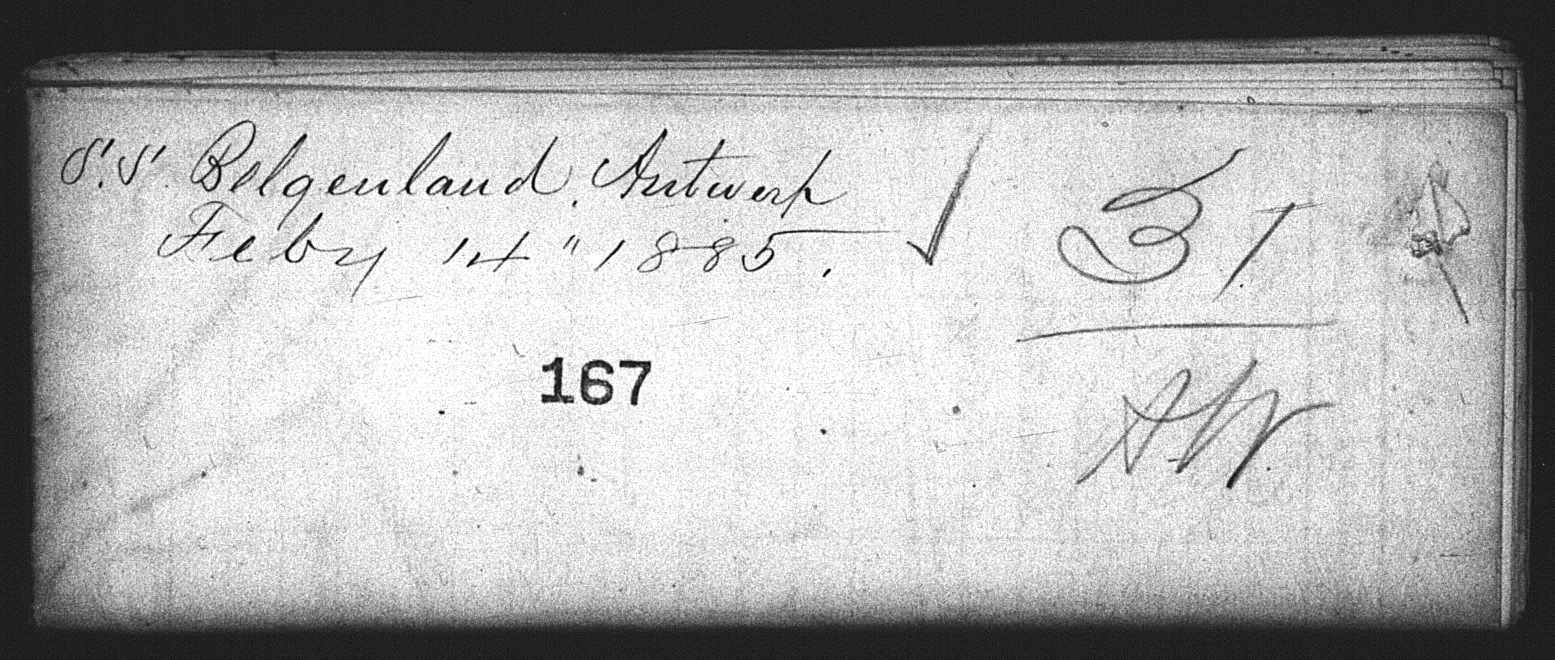 S.S. Belgenland, Antwerp
Feby 14" 1885.
167